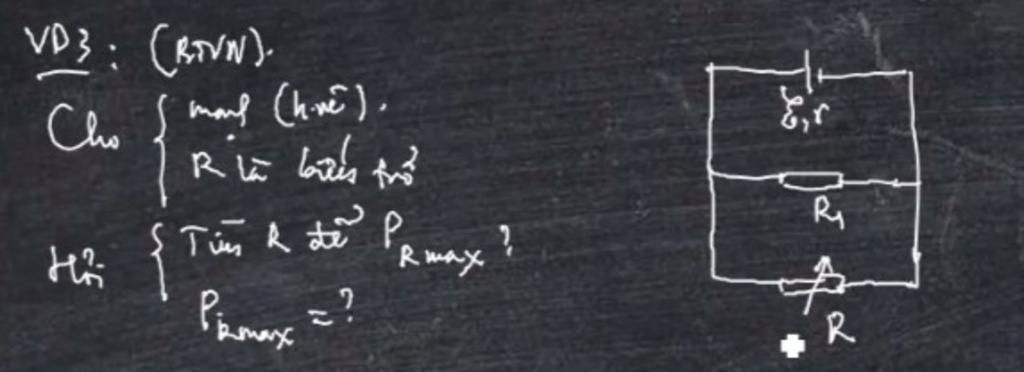 VD3: (BTVN).
Cho { mạch (h.vẽ).
R là biến trở
Hỏi { Tìm R để P R max?
P R max = ?
ξ, r
R₁
R